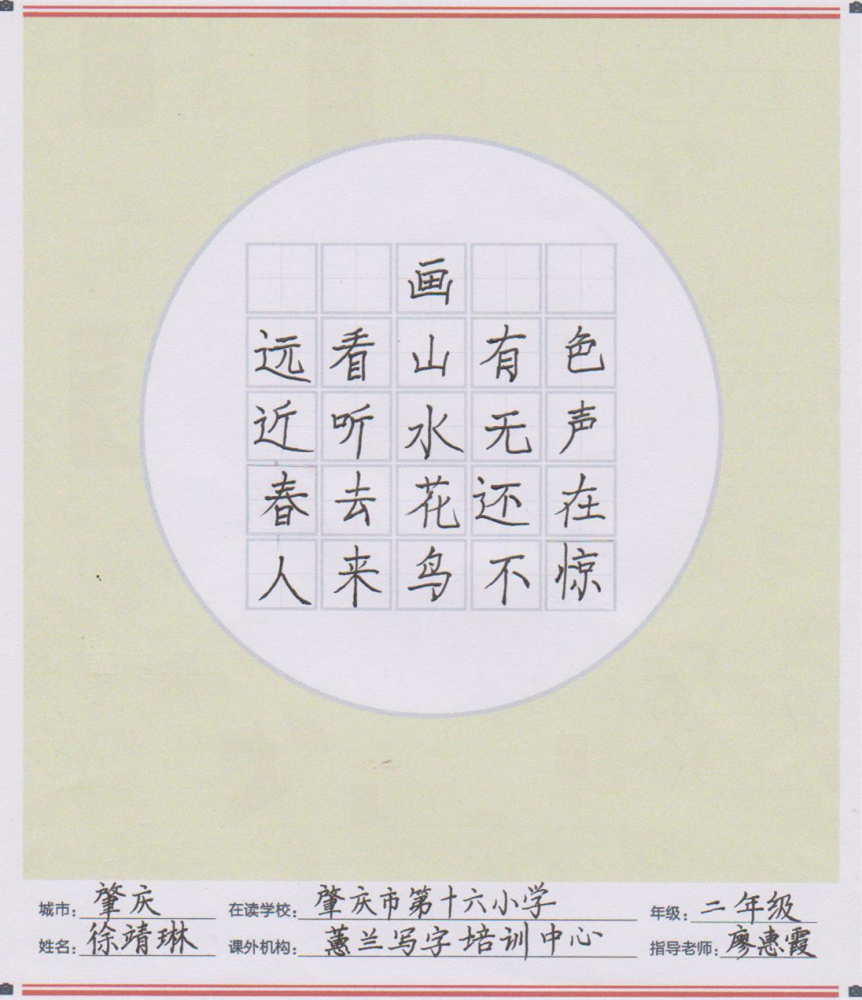 画
远看山有色
近听水无声
春去花还在
人来鸟不惊
城市：肇庆 在读学校：肇庆市第十六小学 年级：二年级
姓名：徐靖琳 课外机构：蕙兰写字培训中心 指导老师：廖惠霞